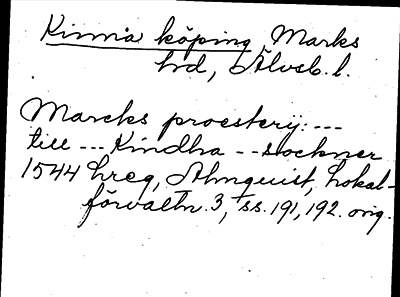 Kinna köping, Marks
hd, Älvsb. l.
Marcks proesterij: ---
till --- Kindha -- sockner
1544 hreg, Almquist, Lokal-
förvaltn. 3, ss. 191, 192. orig.